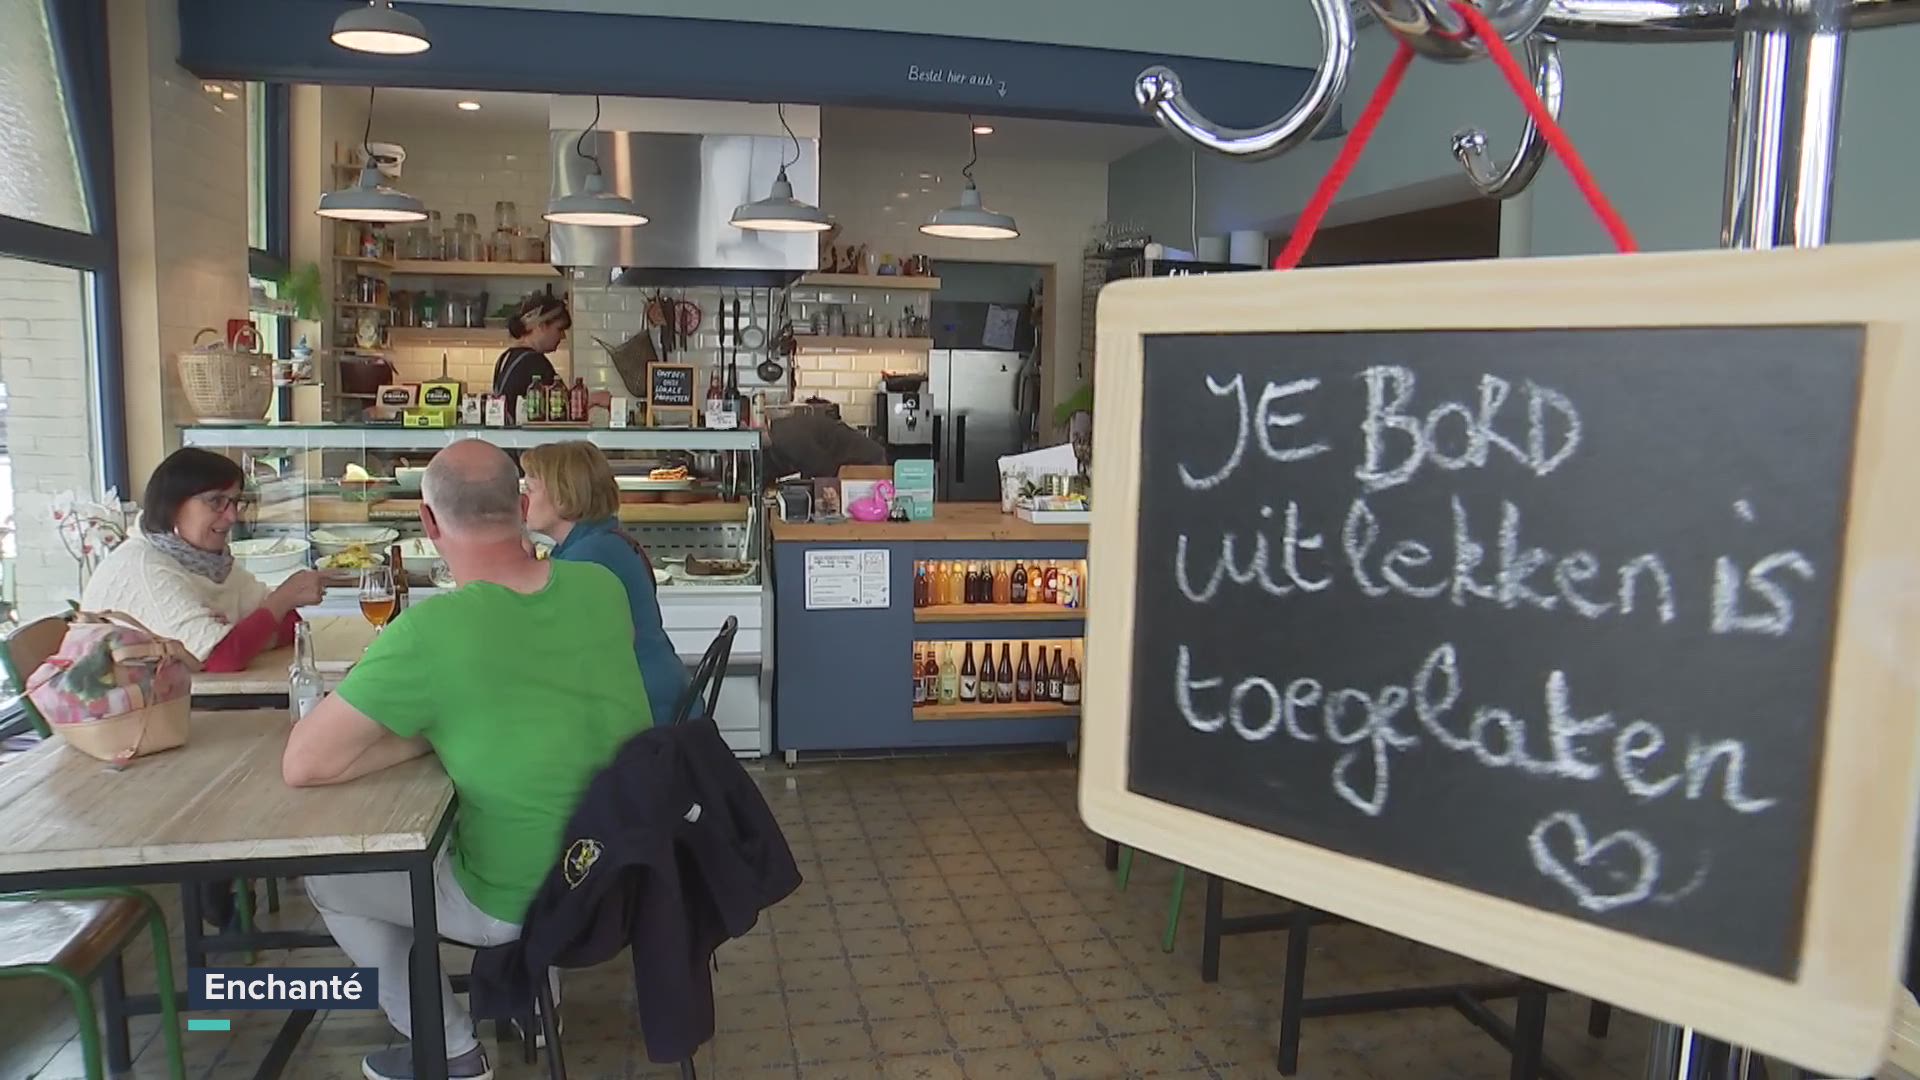 Bestel hier aub
ONTDEK
ONZE
LOKALE
PRODUCTEN
JE BORD
uitlekken is
toegelaten
Enchanté